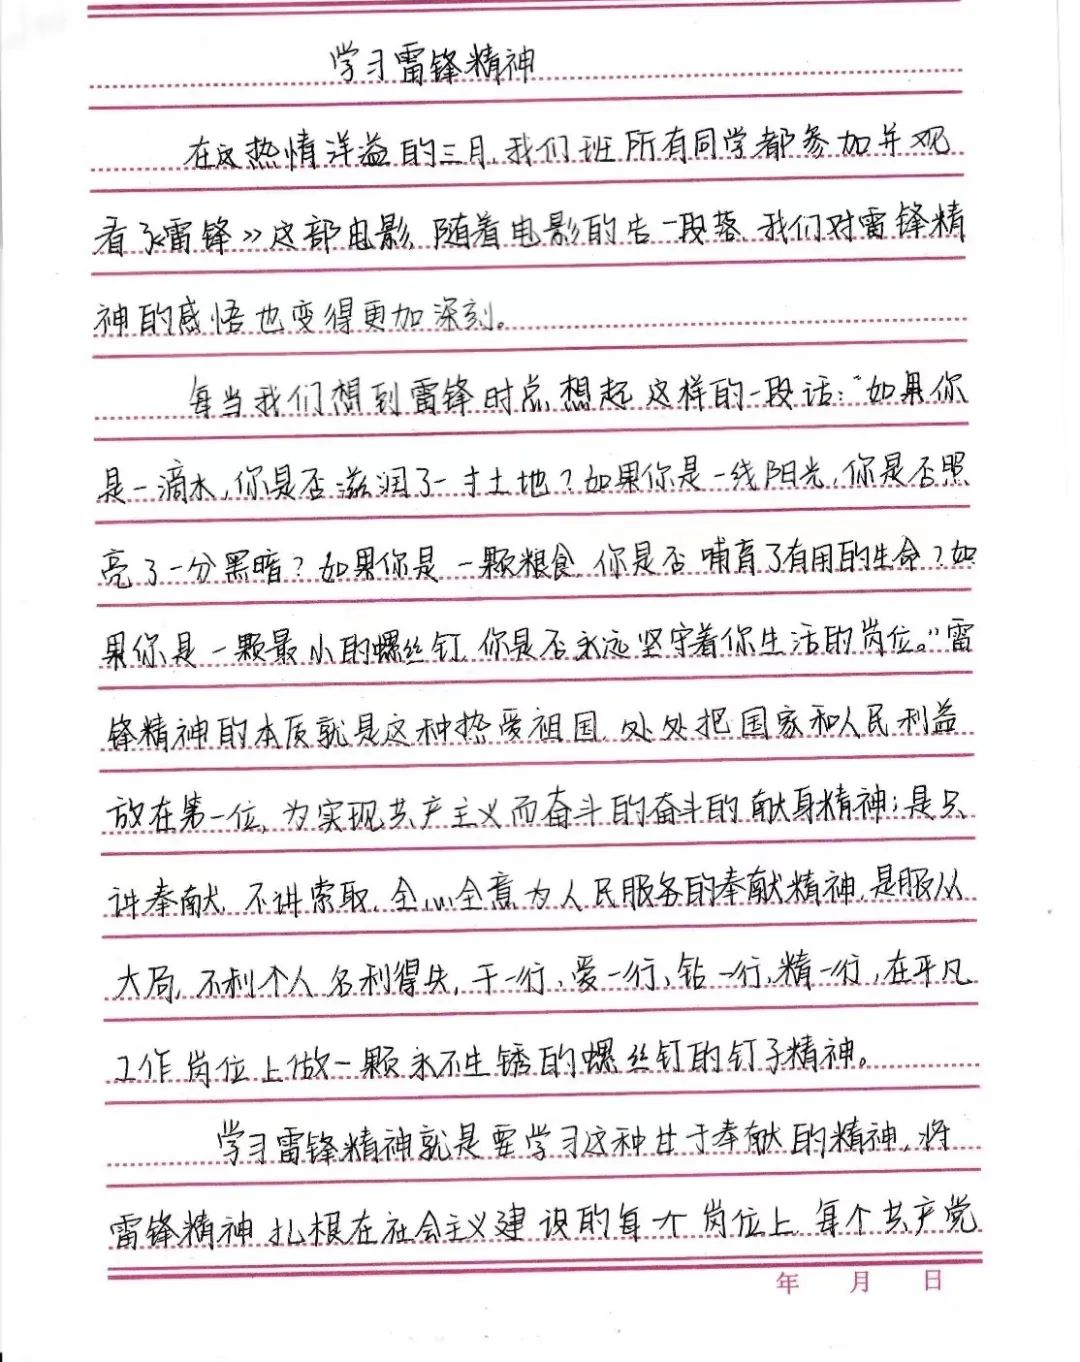 学习雷锋精神
在这热情洋溢的三月,我们班所有同学都参加并观
看了《雷锋》这部电影,随着电影的告一段落,我们对雷锋精
神的感悟也变得更加深刻。
每当我们想到雷锋时总想起这样的一段话:“如果你
是一滴水,你是否滋润了一寸土地?如果你是一线阳光,你是否照
亮了一分黑暗?如果你是一颗粮食,你是否哺育了有用的生命?如
果你是一颗最小的螺丝钉,你是否永远坚守着你生活的岗位。”雷
锋精神的本质就是这种热爱祖国,处处把国家和人民利益
放在第一位,为实现共产主义而奋斗的奋斗的献身精神;是只
讲奉献,不讲索取,全心全意为人民服务的奉献精神,是服从
大局,不利个人名利得失,干一行、爱一行、钻一行、精一行,在平凡
工作岗位上做一颗永不生锈的螺丝钉的钉子精神。
学习雷锋精神就是要学习这种甘于奉献的精神,将
雷锋精神扎根在社会主义建设的每个岗位上,每个共产党
年 月 日